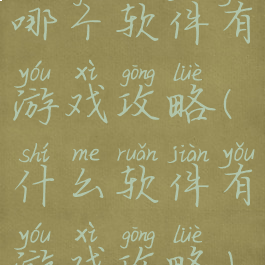 哪个软件有
yóu xì gōng lüè
游戏攻略(
shí me ruǎn jiàn yǒu
什么软件有
yóu xì gōng lüè
游戏攻略)